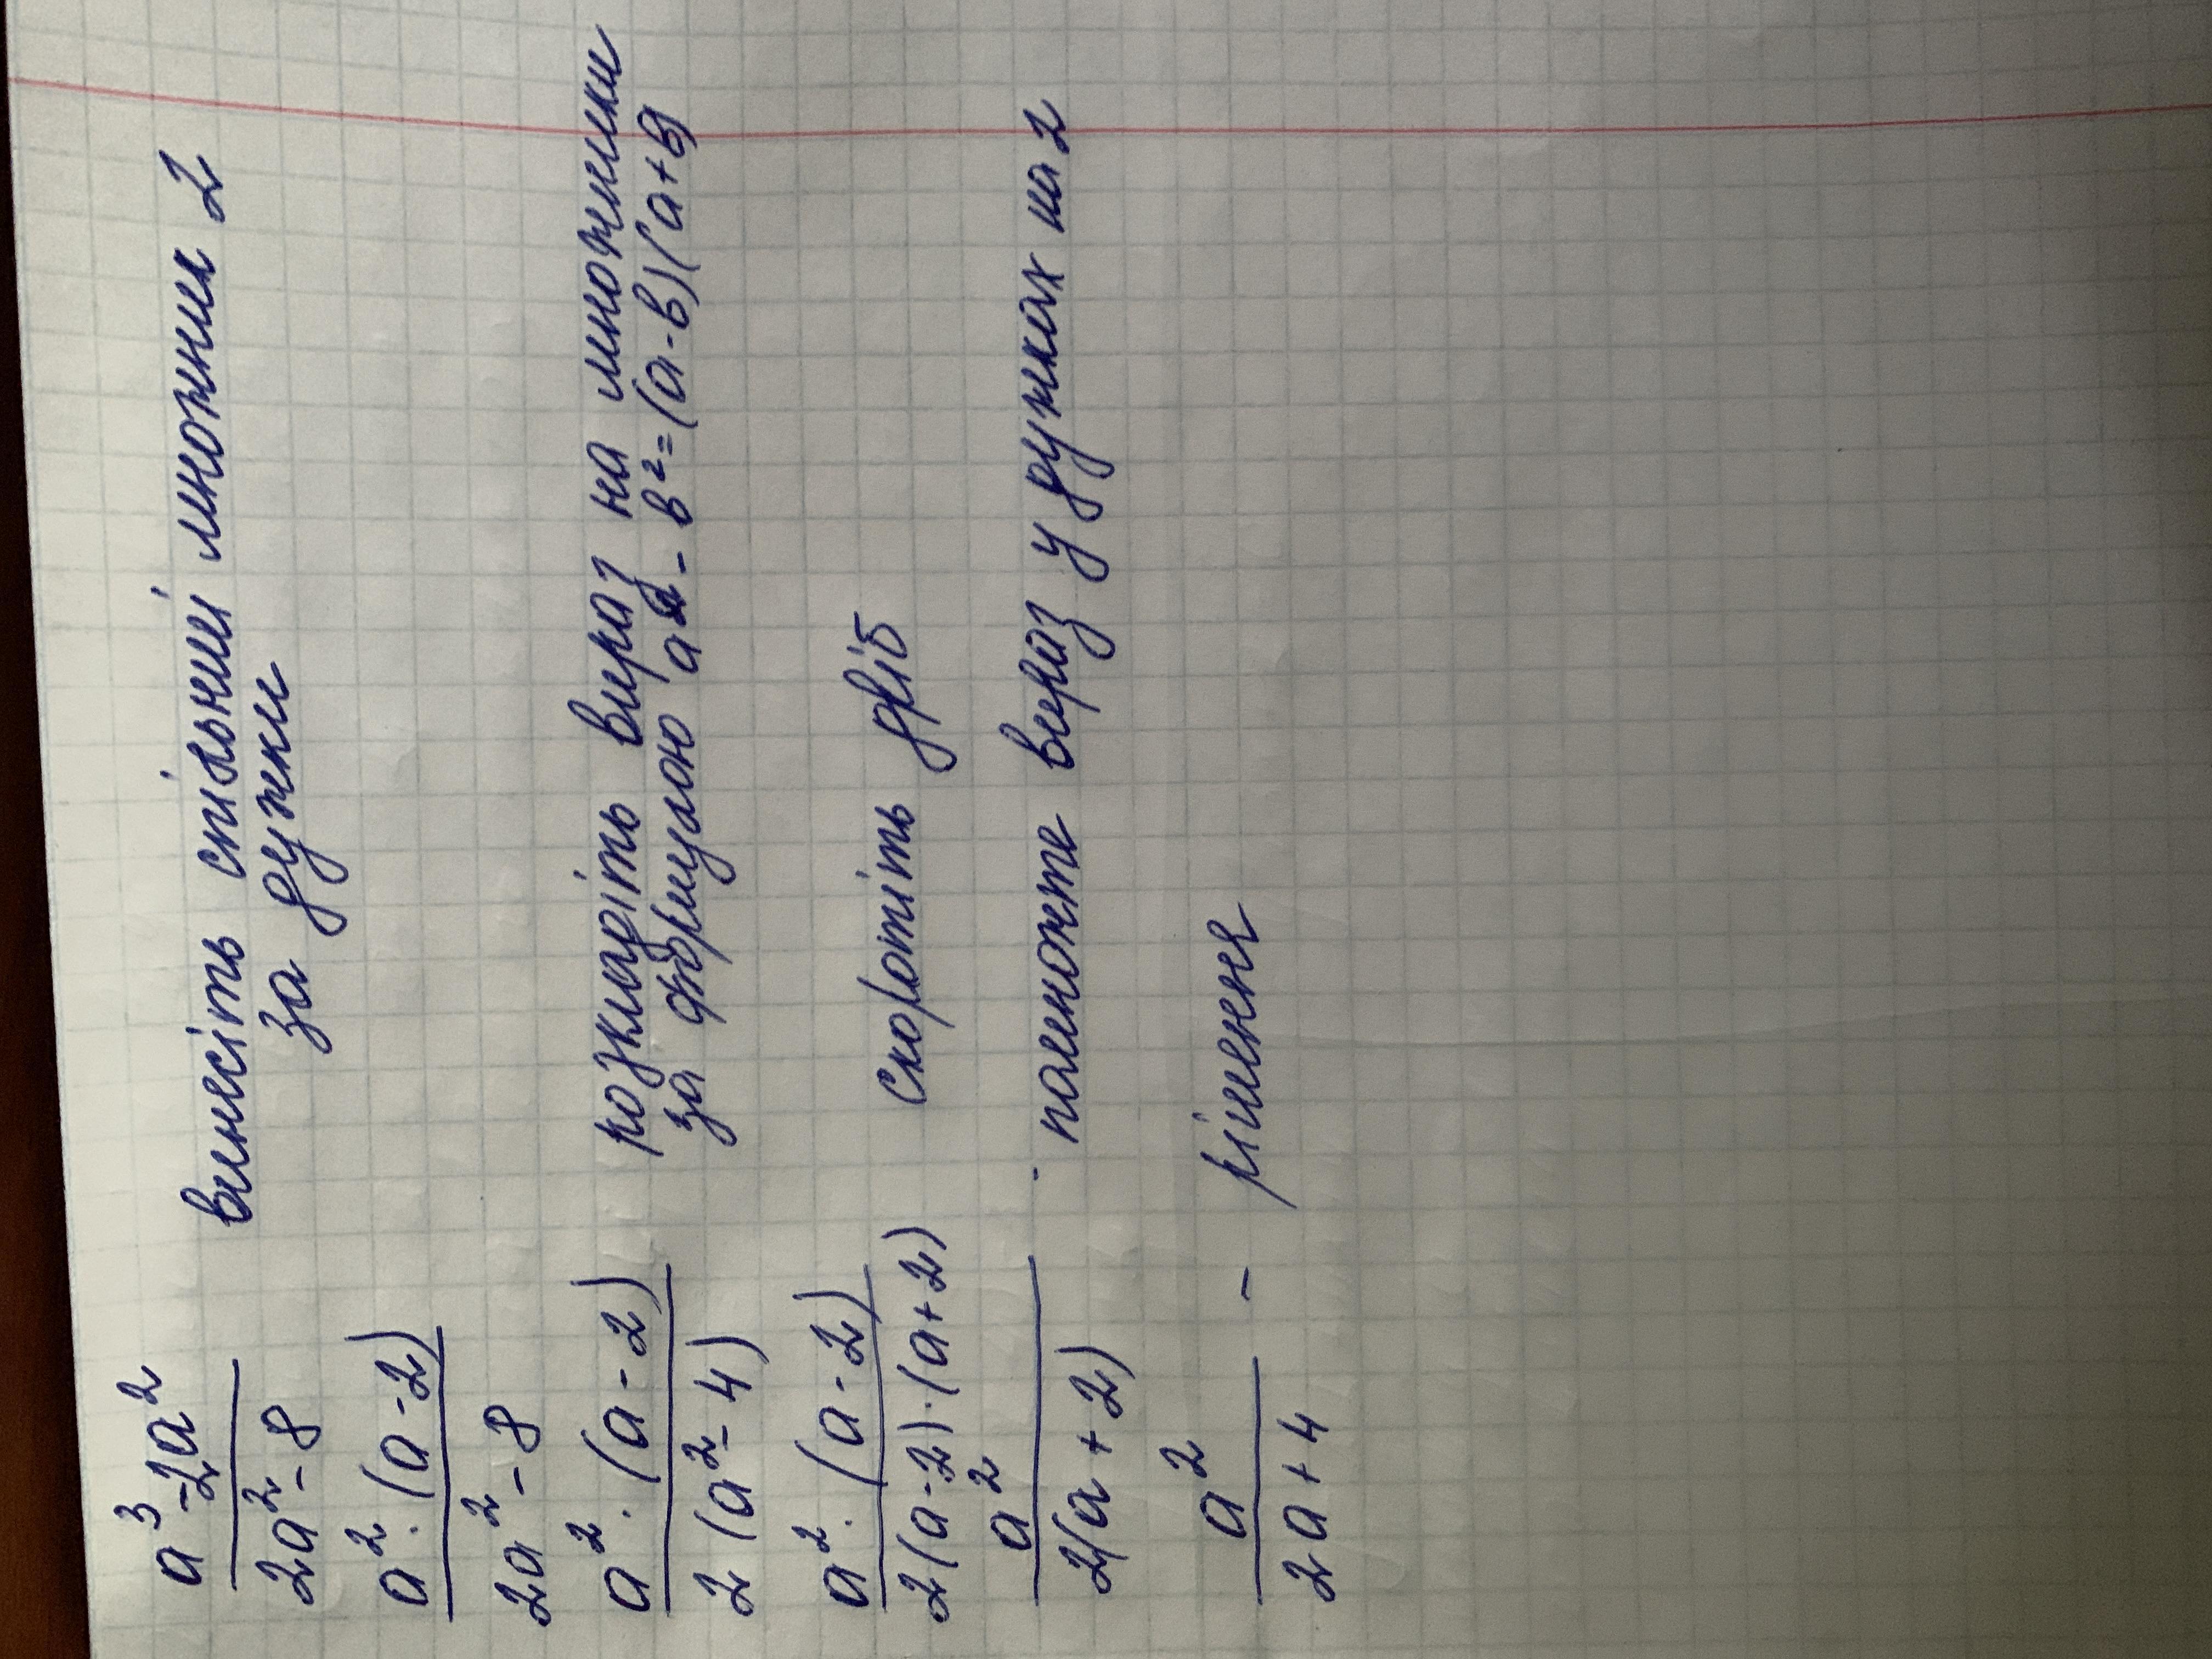 a³-2a² винесіть спільний множник 2
2a²-8 за дужки
a²·(a-2)
2a²-8
a²·(a-2) розкладіть вираз на множники
2(a²-4) за формулою a²-в²=(a-в)(a+в)
a²·(a-2)
2(a-2)·(a+2) Скоротіть дріб
a²
2(a+2) помножте вираз у дужках на 2
a²
2a+4 - рішення